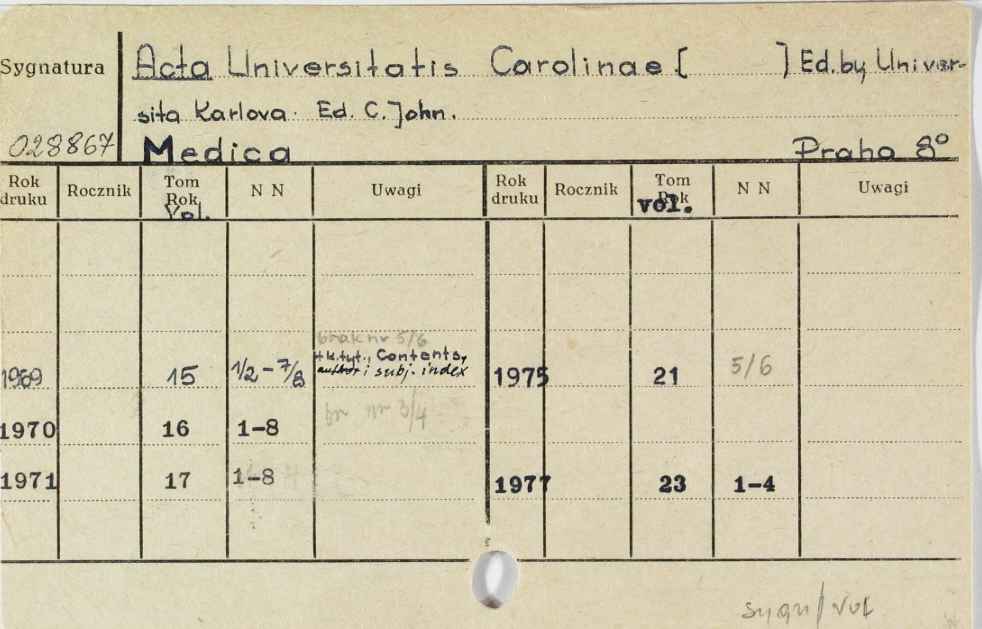 Sygnatura Acta Universitatis Carolinae [ ] Ed. by Univer-
sita Karlova. Ed. C. John.
028867 Medica Praha 8°
Rok druku Rocznik Tom Rok Vol. N N Uwagi Rok druku Rocznik Tom Rok vol. N N Uwagi
brak nr 5/6
1969 15 1/2-7/8 +k.tyt., Contents, author i subj. index 1975 21 5/6
br nr 3/4
1970 16 1-8
1971 17 1-8 1977 23 1-4
sygn/vol